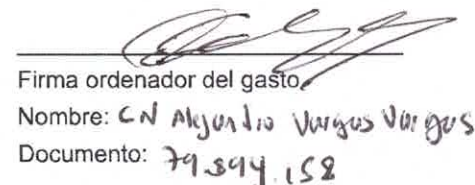 Firma ordenador del gasto
Nombre: CN Alejandro Vargas Vargas
Documento: 79.594.158